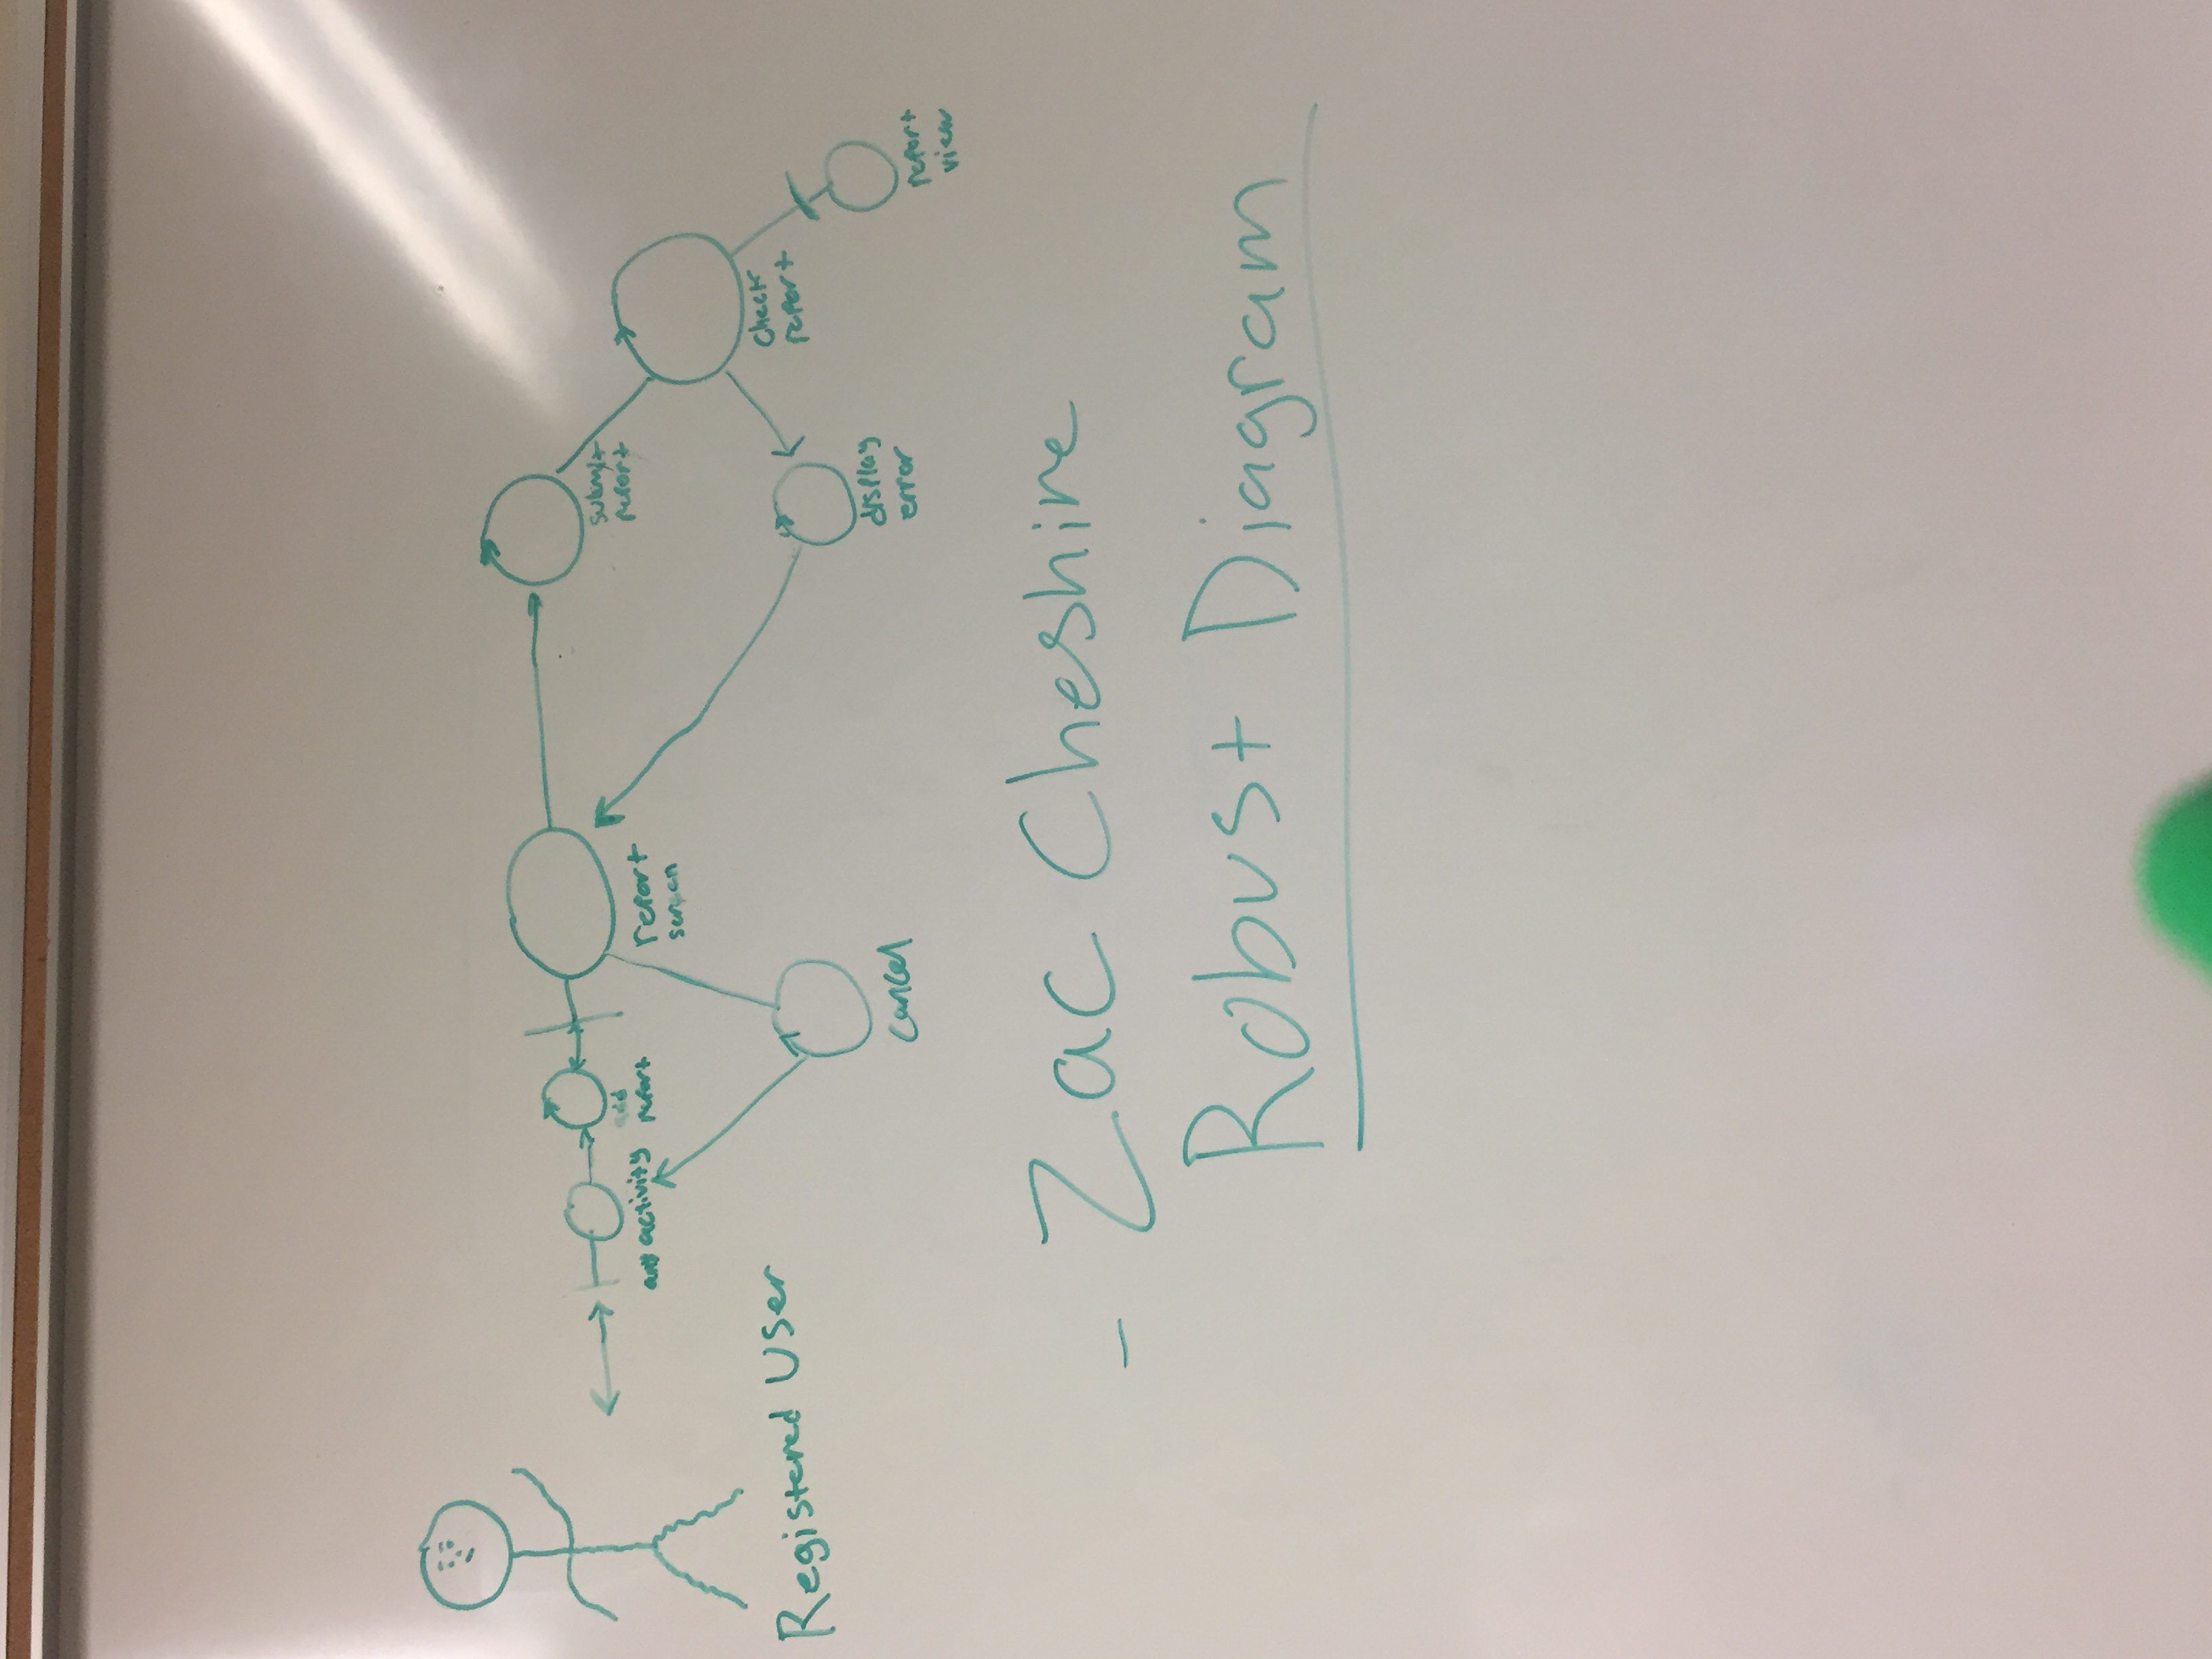 Registered User
any activity
add
report
report
screen
cancel
submit
report
check
report
display
error
report
view
- Zac Cheshire
Robust Diagram